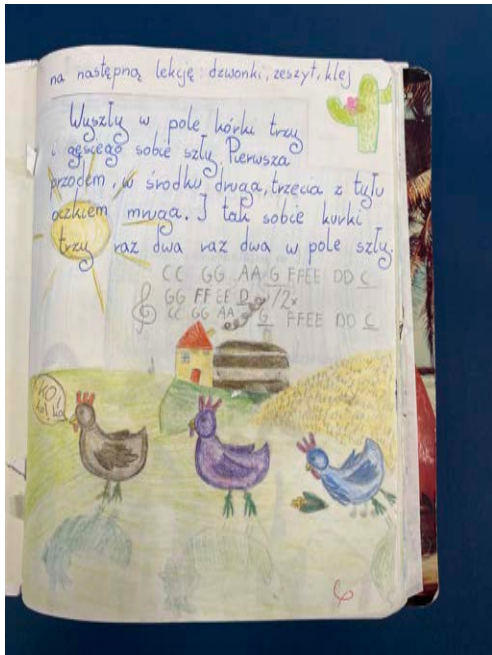 na następną lekcję: dzwonki, zeszyt, klej
Wyszły w pole kórki trzy
i gęsiego sobie szły. Pierwsza
przodem, w środku druga, trzęcia z tyłu
oczkiem mruga. I tak sobie kurki
trzy raz dwa raz dwa w pole szły.
CC GG AA G FFEE DD C
GG FF EE D /2x
CC GG AA G FFEE DD C
KO
ko ko